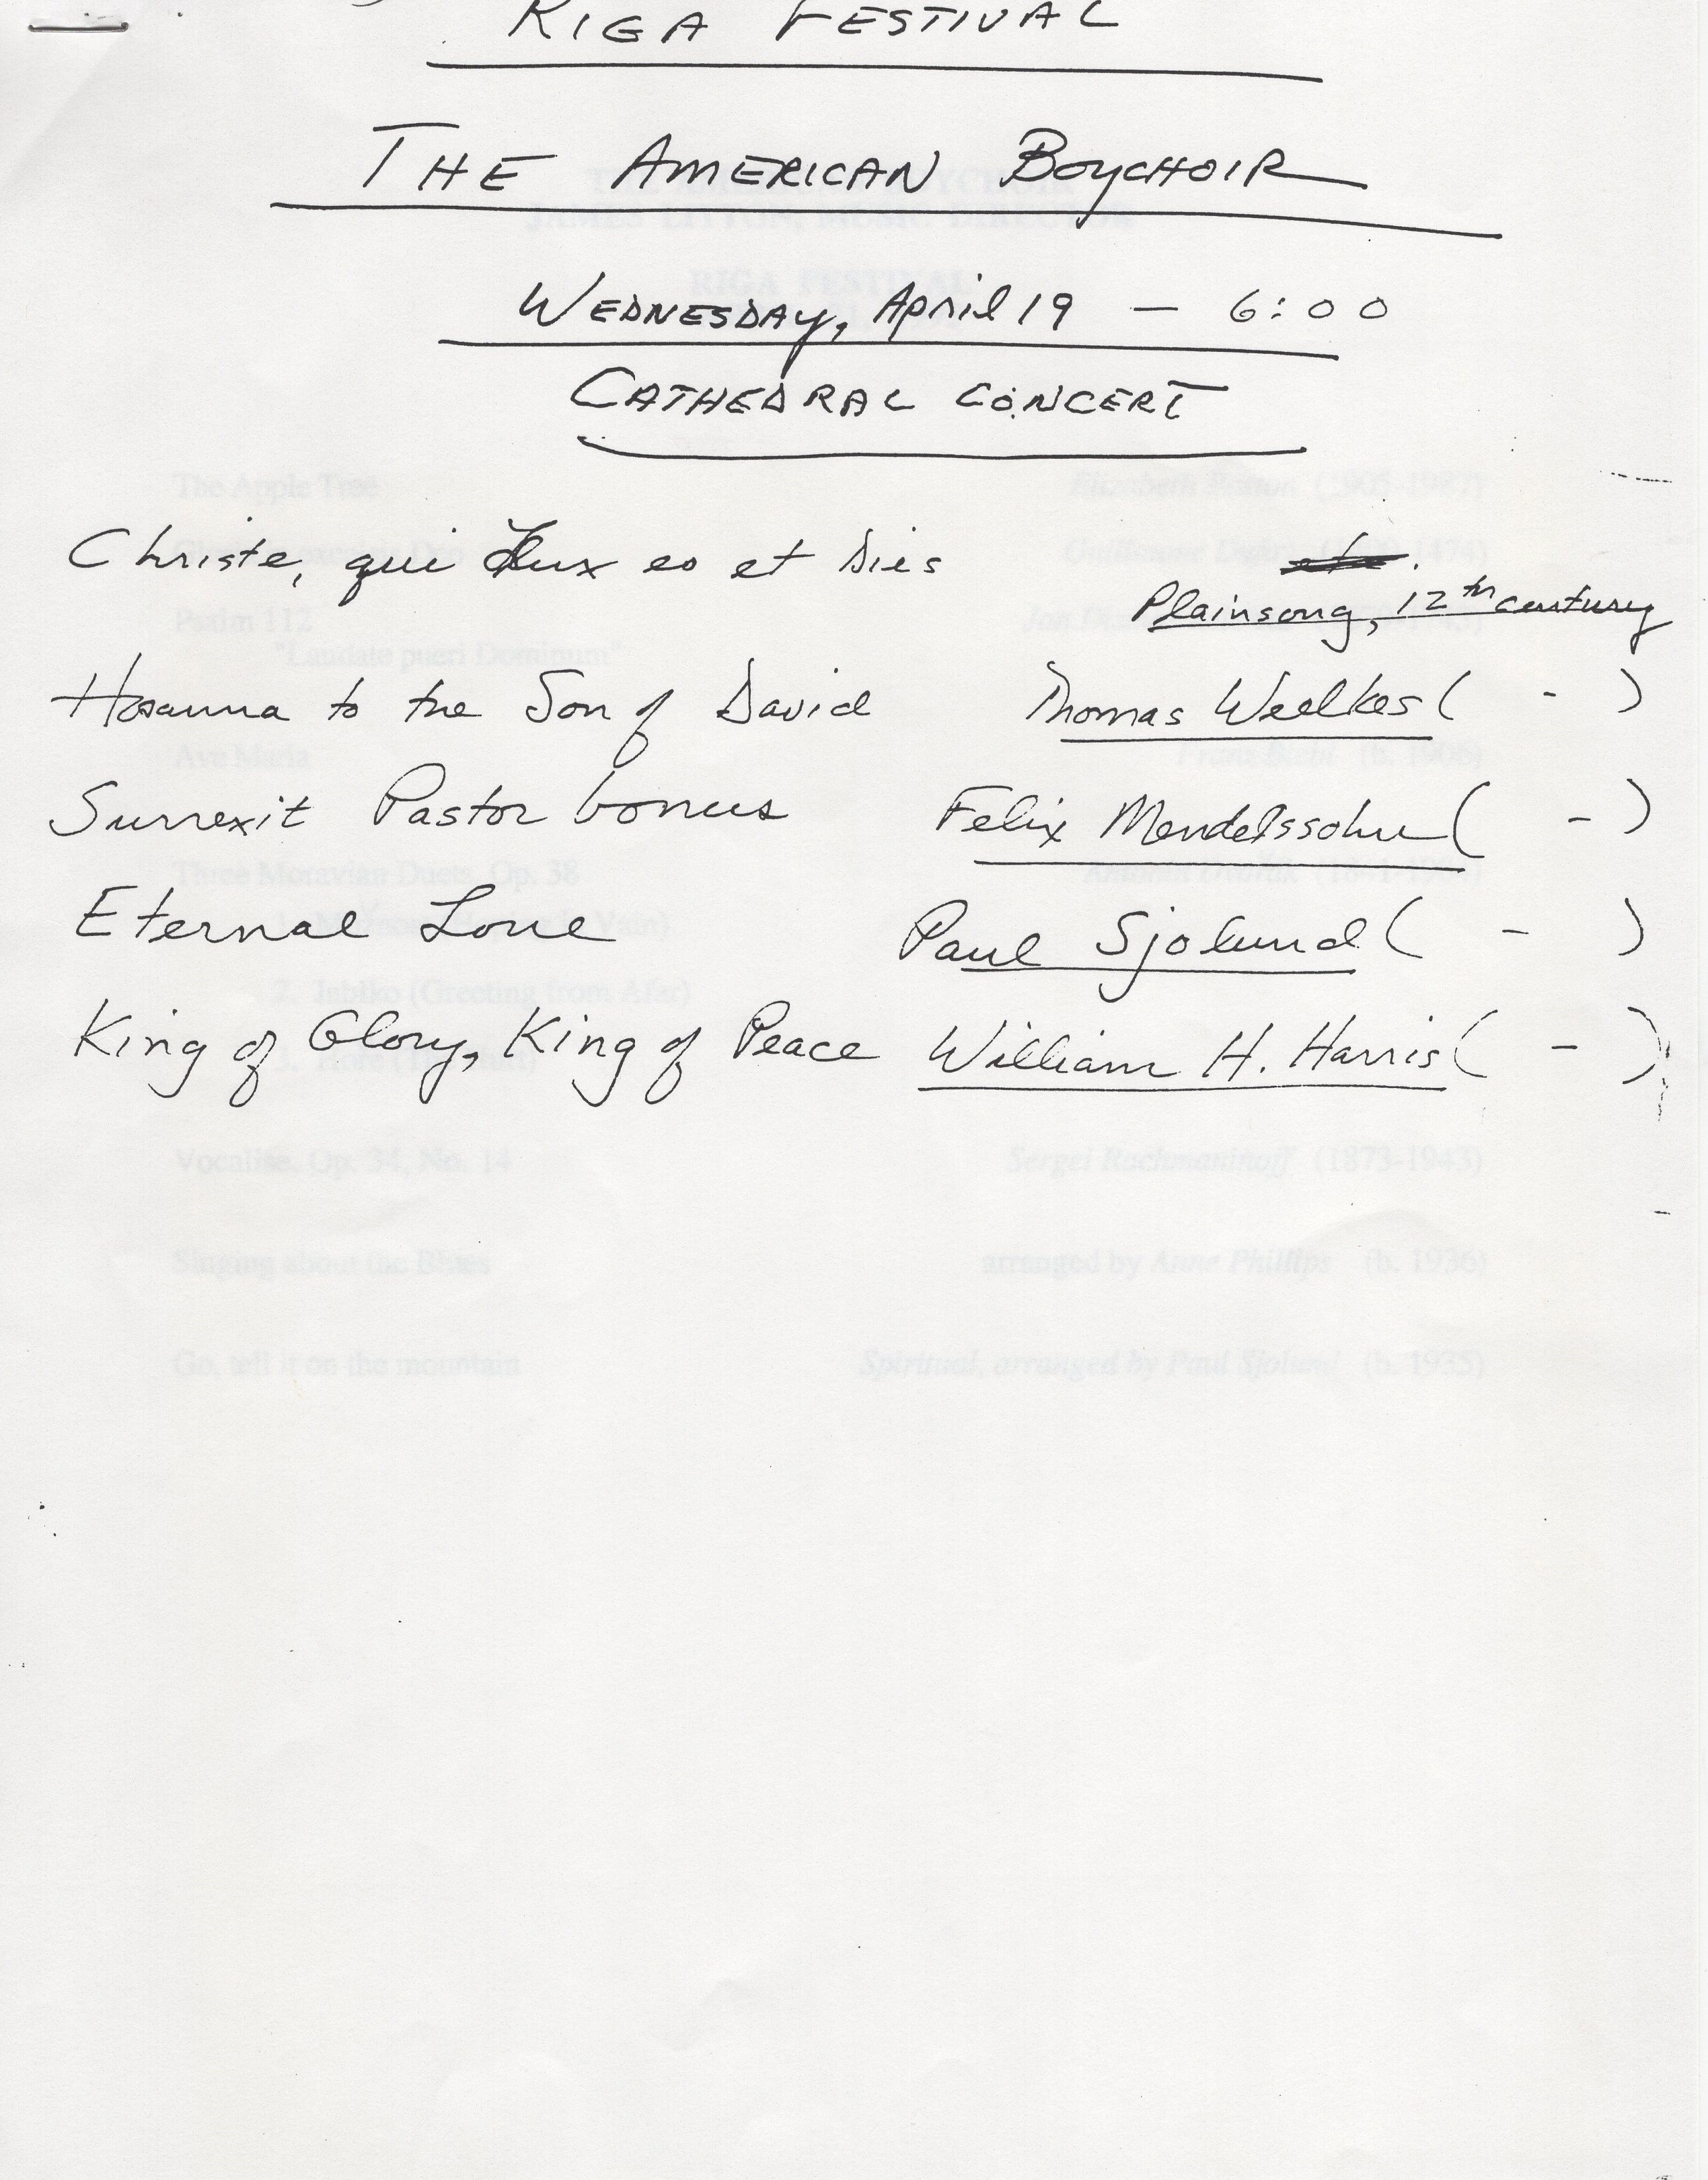 RIGA FESTIVAL
THE AMERICAN BOYCHOIR
WEDNESDAY, April 19 — 6:00
CATHEDRAL CONCERT
Christe, qui Lux es et Dies
Plainsong, 12th century
Hosanna to the Son of David Thomas Weelkes ( - )
Surrexit Pastor bonus Felix Mendelssohn ( - )
Eternal Love Paul Sjolund ( - )
King of Glory, King of Peace William H. Harris ( - )
THE AMERICAN BOYCHOIR
JAMES LITTON, MUSIC DIRECTOR
RIGA FESTIVAL
The Apple Tree Elizabeth Poston (1905-1987)
Psalm 112
"Laudate pueri Dominum"
Ave Maria Franz Biebl (b. 1906)
Three Moravian Duets, Op. 38
2. Jablko (Greeting from Afar)
Vocalise, Op. 34, No. 14 Sergei Rachmaninoff (1873-1943)
Singing about the Blues arranged by Anne Phillips (b. 1936)
Go, tell it on the mountain Spiritual, arranged by Paul Sjolund (b. 1935)